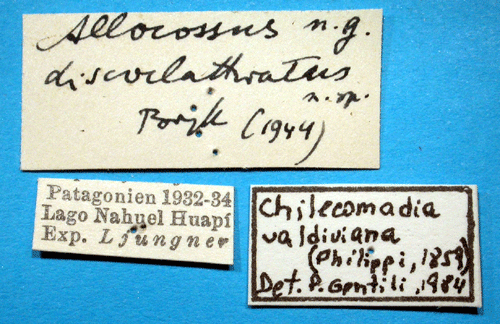 Allocossus n.g.
discoclathratus
n.sp.
Bryk (1944)
Patagonien 1932-34
Lago Nahuel Huapí
Exp. Ljungner
Chilecomadia
valdiviana
(Philippi, 1859)
Det. P. Gentili, 1984